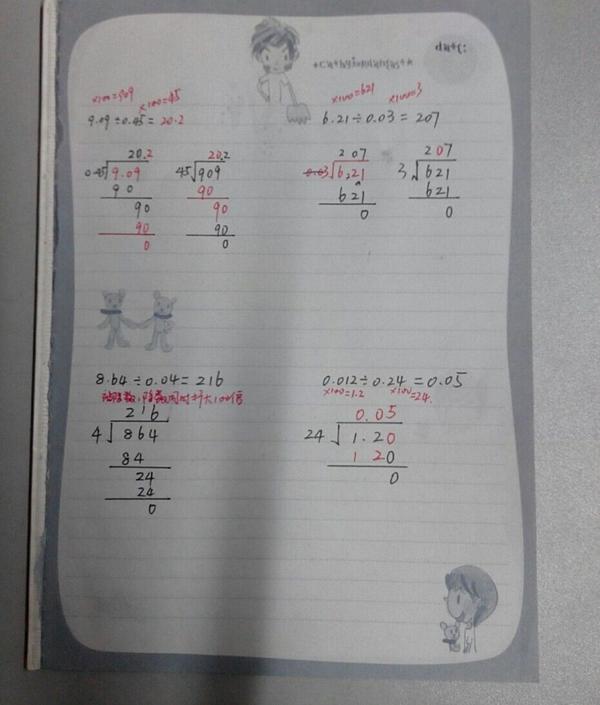 ×100=909 ×100=45
9.09÷0.45=20.2
20.2
0.45 9.09
90
90
90
0
20.2
45 909
90
90
90
0
×100=621 ×100=3
6.21÷0.03=207
207
0.03 6.21
621
0
207
3 621
621
0
8.64÷0.04=216
被除数,除数同时扩大100倍
216
4 864
84
24
24
0
0.012÷0.24=0.05
×100=1.2 ×100=24.
0.05
24 1.20
1 20
0